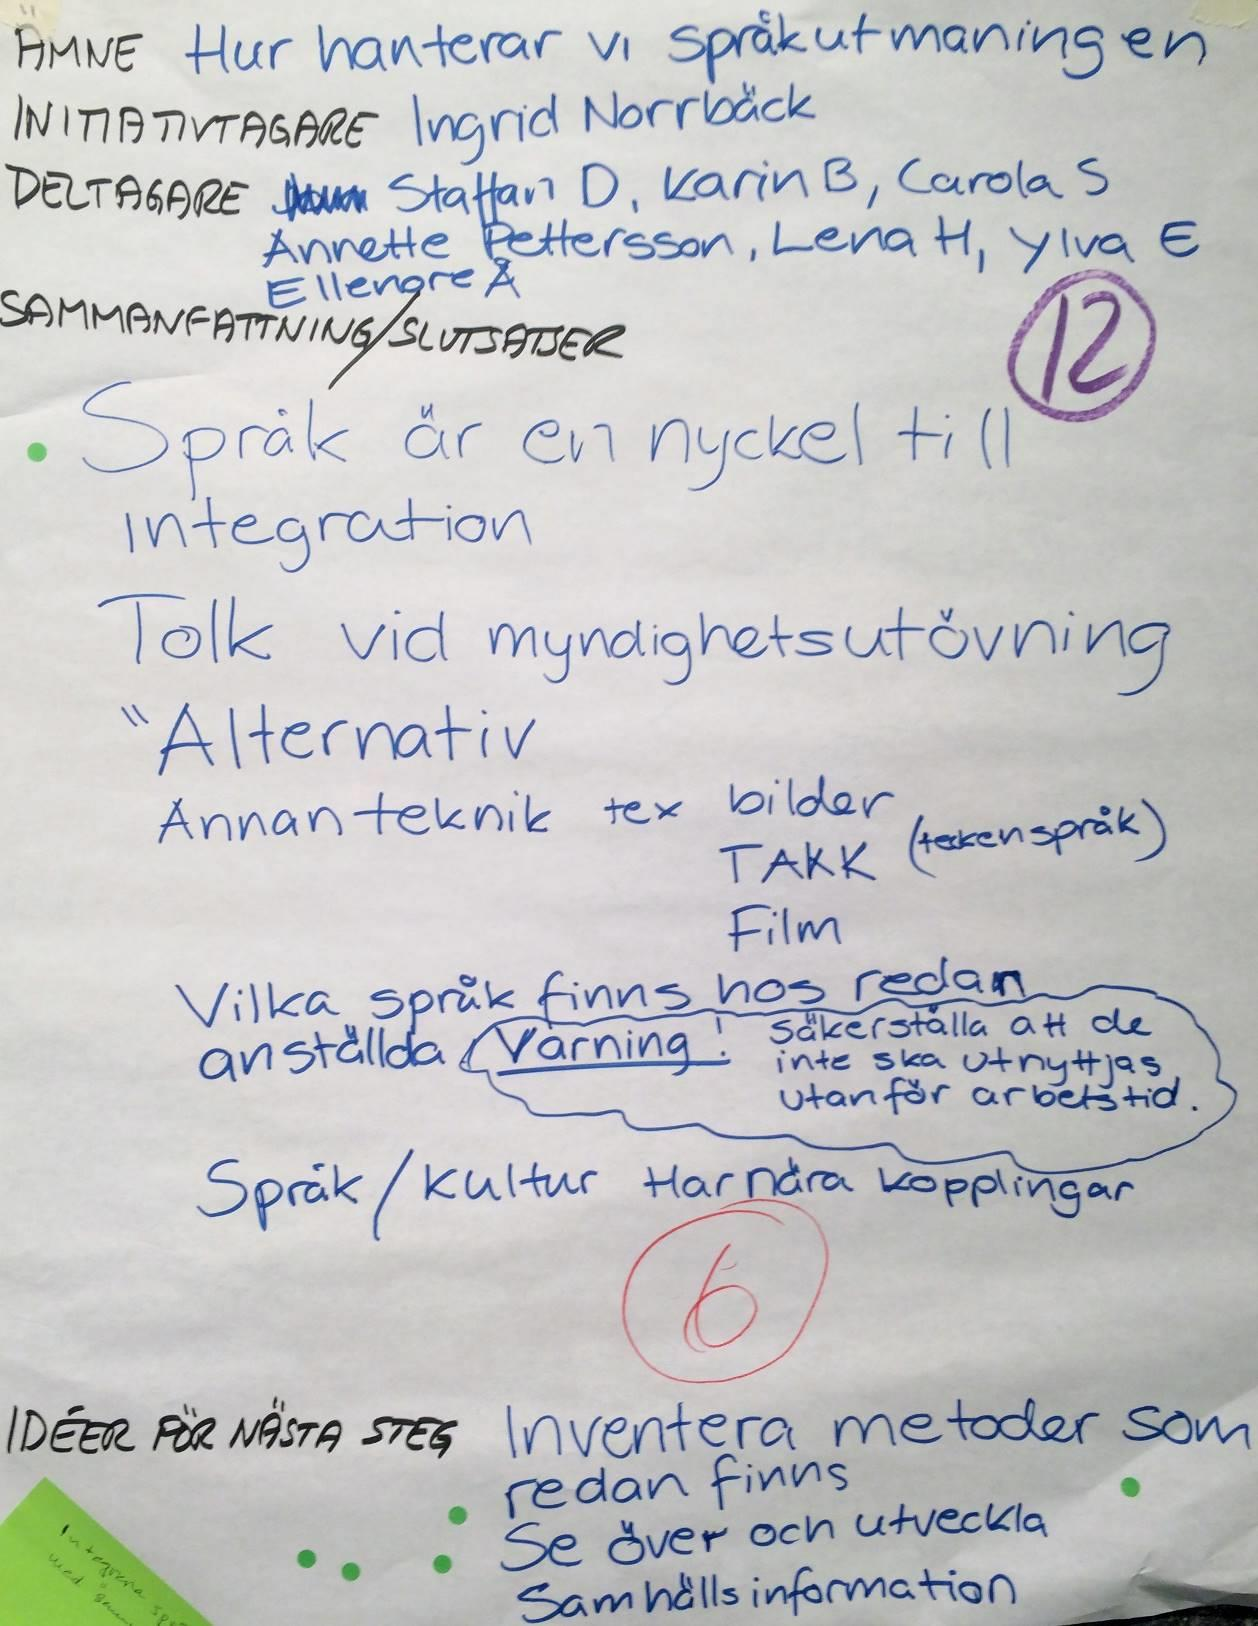 ÄMNE Hur hanterar vi språkutmaningen
INITIATIVTAGARE Ingrid Norrbäck
DELTAGARE Staffan D, Karin B, Carola S
Annette Pettersson, Lena H, Ylva E
Ellenore Å
SAMMANFATTNING/SLUTSATSER
12
Språk är en nyckel till
integration
Tolk vid myndighetsutövning
"Alternativ
Annan teknik tex bilder
TAKK (teckenspråk)
Film
Vilka språk finns hos redan
anställda Varning! Säkerställa att de
inte ska utnyttjas
utanför arbetstid.
Språk/kultur Har nära kopplingar
6
IDÉER FÖR NÄSTA STEG Inventera metoder som
redan finns
Se över och utveckla
Samhällsinformation
Integrera
med